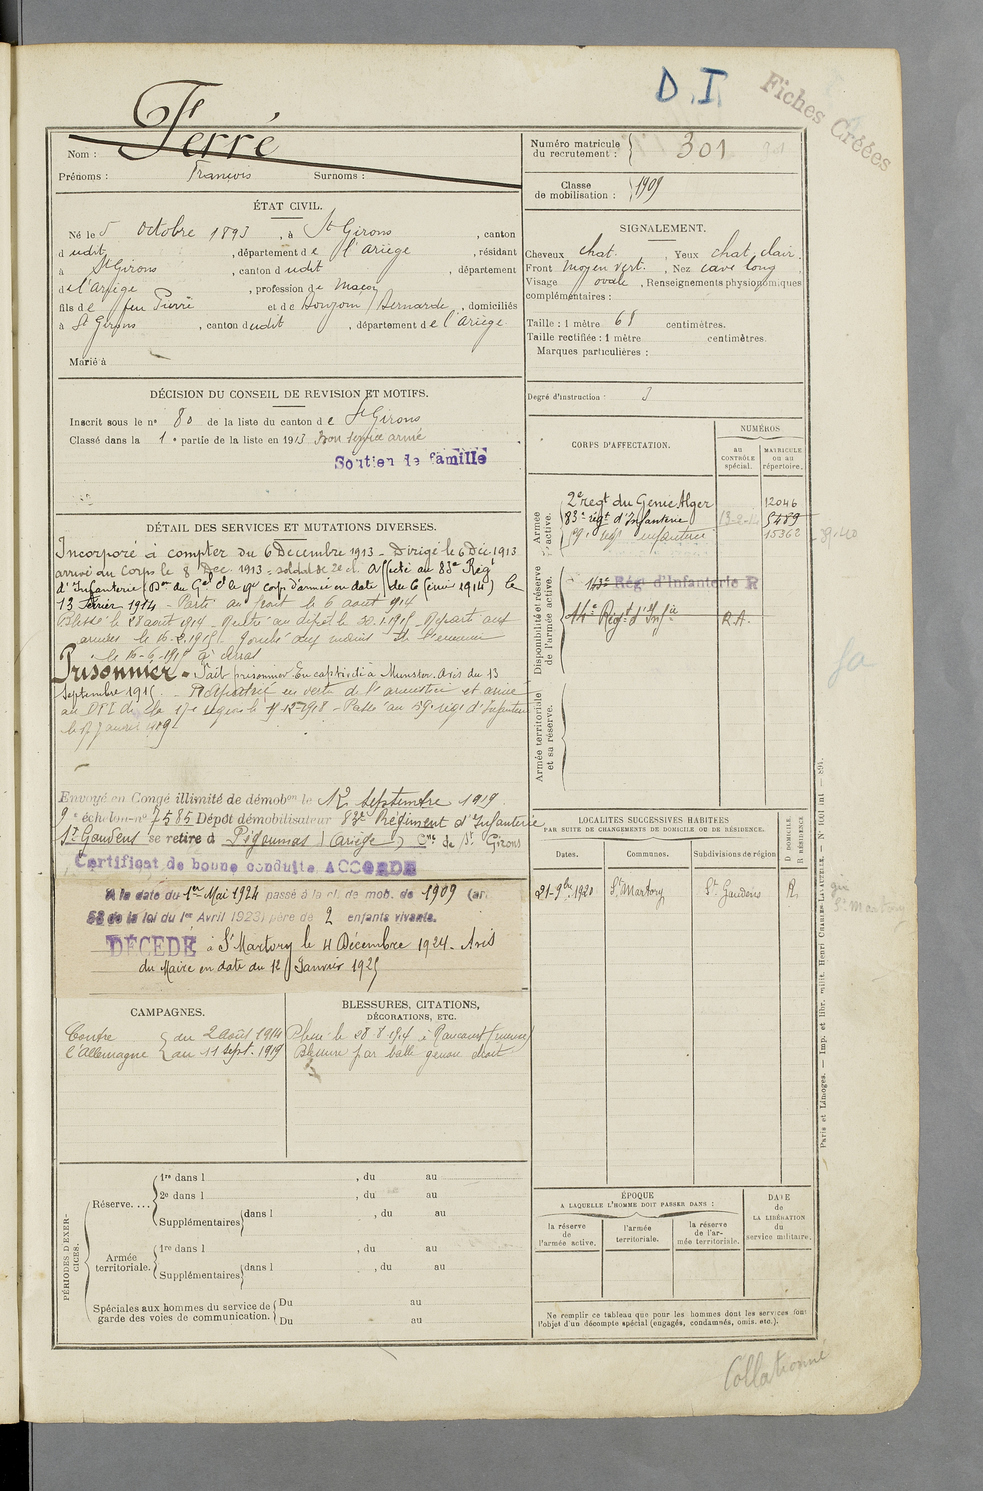 D. I
Fiches Créées
Nom : Ferré
Prénoms : François Surnoms :
Numéro matricule du recrutement : 301
Classe de mobilisation : 1909
ÉTAT CIVIL.
Né le 5 octobre 1893, à St Girons, canton
dudit, département de l'Ariège, résidant
à St Girons, canton dudit, département
de l'Ariège, profession de maçon
fils de feu Pierre et de Bernarde, domiciliés
à St Girons, canton dudit, département de l'Ariège
Marié à
SIGNALEMENT.
Cheveux chat. , Yeux chat. clair.
Front moyen vert. , Nez cave long
Visage ovale, Renseignements physionomiques
complémentaires :
Taille : 1 mètre 68 centimètres.
Taille rectifiée : 1 mètre centimètres.
Marques particulières :
Degré d'instruction : 3
DÉCISION DU CONSEIL DE REVISION ET MOTIFS.
Inscrit sous le no 80 de la liste du canton de St Girons
Classé dans la 1e partie de la liste en 1913 Bon service armé
Soutien de famille
CORPS D'AFFECTATION.
NUMÉROS
au CONTRÔLE spécial.
MATRICULE ou au répertoire.
Armée active.
2e regt du Genie Alger 12046
83e régt d'Infanterie 5489
59e regt infanterie 15362
Disponibilité et réserve de l'armée active.
143e Rég. d'Infanterie R
14e Régt d'Infie R.A.
Armée territoriale et sa réserve.
DÉTAIL DES SERVICES ET MUTATIONS DIVERSES.
Incorporé à compter du 6 Décembre 1913 - Dirigé le 6 Déc 1913
arrivé au Corps le 8 Déc. 1913 = soldat de 2e cl. Affecté au 83e Régt
d'Infanterie (Don du Gal Ct le 17e corps d'armée en date du 6 février 1914) le
13 Février 1914 - Parti au front le 6 août 1914
Blessé le 28 août 1914 - Rentré au dépôt le 20.1.1915 - Reparti aux
armées le 16-2-1915. Tombé aux mains de l'ennemi
le 16-6-1915 à Arras
Prisonnier = Fait prisonnier En captivité à Munster. Avis du 13
Septembre 1915. - Rapatrié en vertu de l'armistice et arrivé
au DPI de la 17e région le - Passé au 59e régt d'Infanterie
le 17 janvier 1919
Envoyé en Congé illimité de démobon le 12 septembre 1919
9e échelon-no 7585 Dépôt démobilisateur 83e Régiment d'Infanterie
St Gaudens se retire à (Ariège) Cne de St Girons
Certificat de bonne conduite ACCORDÉ
A la date du 1er Mai 1924 passé à la cl. de mob. de 1909 (art.
58 de la loi du 1er Avril 1923) père de 2 enfants vivants.
DÉCÉDÉ à St Martory le 4 Décembre 1924. Avis
du Maire en date du 12 Janvier 1925
LOCALITÉS SUCCESSIVES HABITÉES
PAR SUITE DE CHANGEMENTS DE DOMICILE OU DE RÉSIDENCE.
Dates. Communes. Subdivisions de région
D DOMICILE.
R RÉSIDENCE
21-9bre 1920 St Martory St Gaudens R.
St Martory
CAMPAGNES.
Contre l'Allemagne du 2 août 1914
au 11 sept. 1919
BLESSURES, CITATIONS,
DÉCORATIONS, ETC.
Blessé le 28.8.1914 à Raucourt (meuse)
Blessure par balle genou droit
PÉRIODES D'EXERCICES.
Réserve. ...
1re dans l , du au
2e dans l , du au
Supplémentaires dans l , du au
Armée territoriale.
1re dans l , du au
Supplémentaires dans l , du au
Spéciales aux hommes du service de garde des voies de communication.
Du au
Du au
ÉPOQUE
A LAQUELLE L'HOMME DOIT PASSER DANS :
la réserve de l'armée active.
l'armée territoriale.
la réserve de l'armée territoriale.
DATE de LA LIBÉRATION du service militaire.
Ne remplir ce tableau que pour les hommes dont les services font
l'objet d'un décompte spécial (engagés, condamnés, omis, etc.).
Paris et Limoges. — Imp. et libr. milit. Henri CHARLES-LAVAUZELLE. —
Collationné